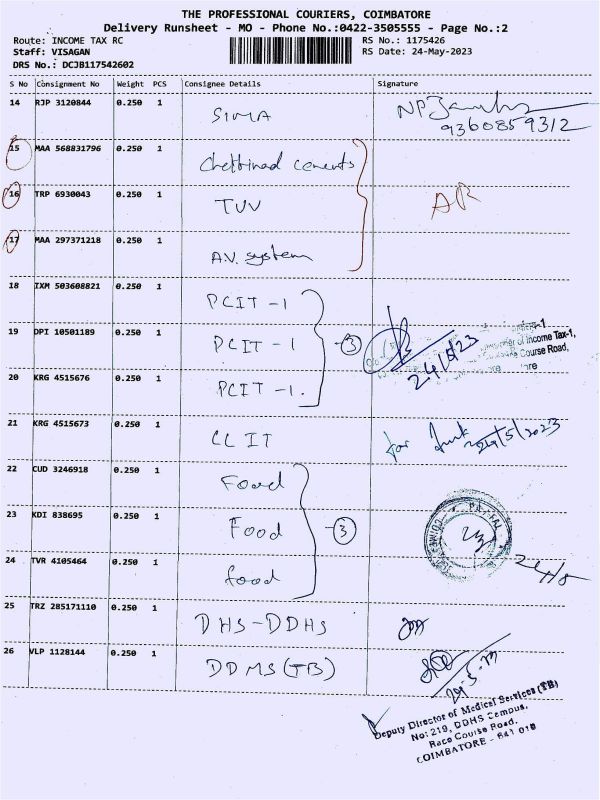 THE PROFESSIONAL COURIERS, COIMBATORE
Delivery Runsheet - MO - Phone No.:0422-3505555 - Page No.:2
Route: INCOME TAX RC
RS No.: 1175426
Staff: VISAGAN
RS Date: 24-May-2023
DRS No.: DCJB117542602
S No Consignment No Weight PCS Consignee Details Signature
14 RJP 3120844 0.250 1 SIMA
9360859312
15 MAA 568831796 0.250 1 Chettinad cements
16 TRP 6930043 0.250 1 TUV AR
17 MAA 297371218 0.250 1 A.V. system
18 IXM 503608821 0.250 1 PCIT -1
19 DPI 10501189 0.250 1 PCIT -1 3 24/5/23
of Income Tax-1,
Course Road,
20 KRG 4515676 0.250 1 PCIT -1.
21 KRG 4515673 0.250 1 CC IT for 24/5/2023
22 CUD 3246918 0.250 1 Food
23 KDI 838695 0.250 1 Food 3
24 TVR 4105464 0.250 1 food
25 TRZ 285171110 0.250 1 DHS-DDHS
26 VLP 1128144 0.250 1 DDMS (TB)
Deputy Director of Medical Services (TB)
No: 219, DDHS Campus,
Race Course Road,
COIMBATORE - 641 018